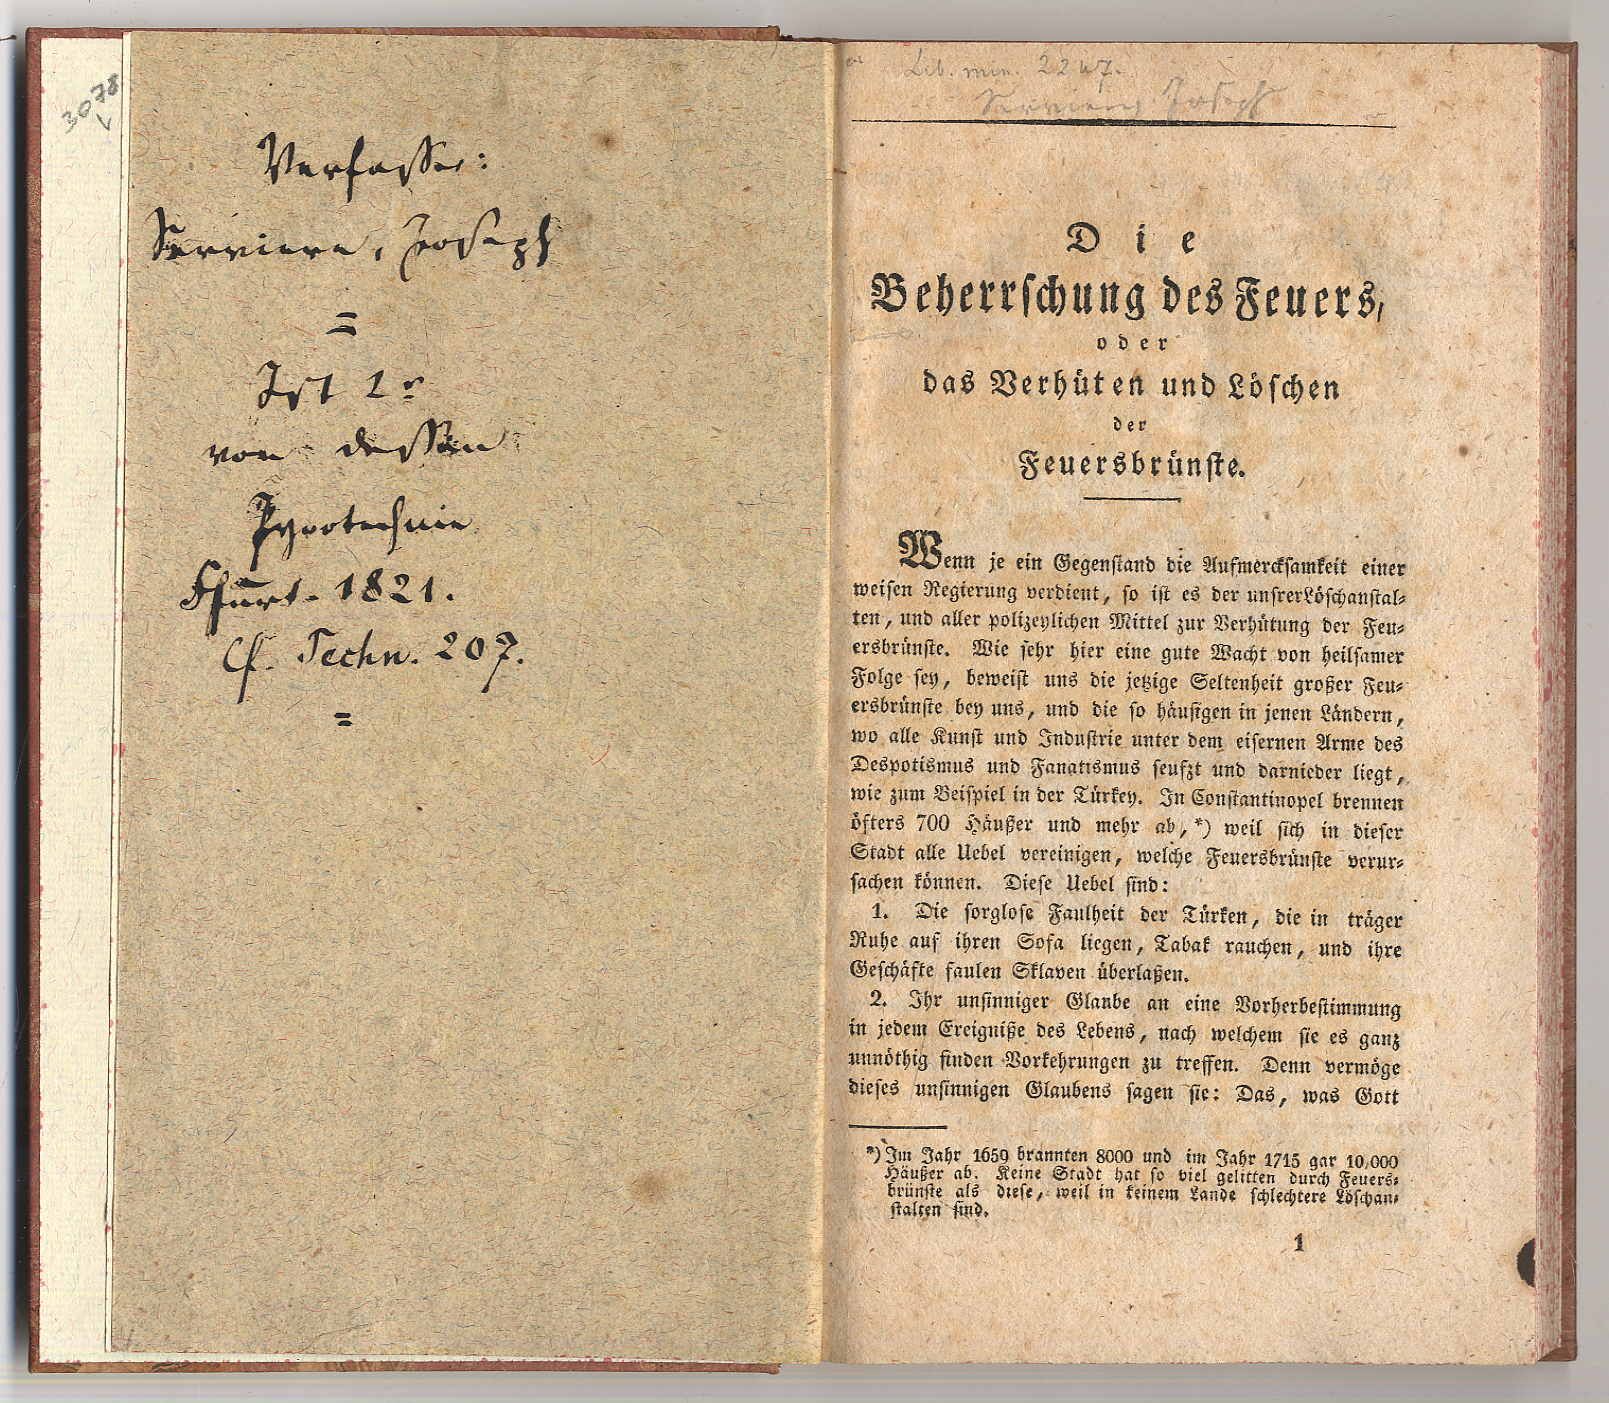 3078
Verfasser:
Serviere, Joseph
=
Ist 1r
von dessen
Pyrotechnie
Ffurt. 1821.
Cf. Techn. 207.
=
Lib. min. 2247.
Serviere, Joseph
Die
Beherrſchung des Feuers,
oder
das Verhüten und Löſchen
der
Feuersbrünſte.
Wenn je ein Gegenſtand die Aufmerckſamkeit einer
weiſen Regierung verdient, ſo iſt es der unſrer Löſchanſtal-
ten, und aller polizeylichen Mittel zur Verhütung der Feu-
ersbrünſte. Wie ſehr hier eine gute Wacht von heilſamer
Folge ſey, beweiſt uns die jetzige Seltenheit großer Feu-
ersbrünſte bey uns, und die ſo häufigen in jenen Ländern,
wo alle Kunſt und Induſtrie unter dem eiſernen Arme des
Despotismus und Fanatismus ſeufzt und darnieder liegt,
wie zum Beiſpiel in der Türkey. In Conſtantinopel brennen
öfters 700 Häußer und mehr ab,*) weil ſich in dieſer
Stadt alle Uebel vereinigen, welche Feuersbrünſte verur-
ſachen können. Dieſe Uebel ſind:
1. Die ſorgloſe Faulheit der Türken, die in träger
Ruhe auf ihren Sofa liegen, Tabak rauchen, und ihre
Geſchäfte faulen Sklaven überlaßen.
2. Ihr unſinniger Glaube an eine Vorherbeſtimmung
in jedem Ereigniße des Lebens, nach welchem ſie es ganz
unnöthig finden Vorkehrungen zu treffen. Denn vermöge
dieſes unſinnigen Glaubens ſagen ſie: Das, was Gott
*) Im Jahr 1659 brannten 8000 und im Jahr 1715 gar 10,000
Häußer ab. Keine Stadt hat ſo viel gelitten durch Feuers-
brünſte als dieſe, weil in keinem Lande ſchlechtere Löſchan-
ſtalten ſind.
1